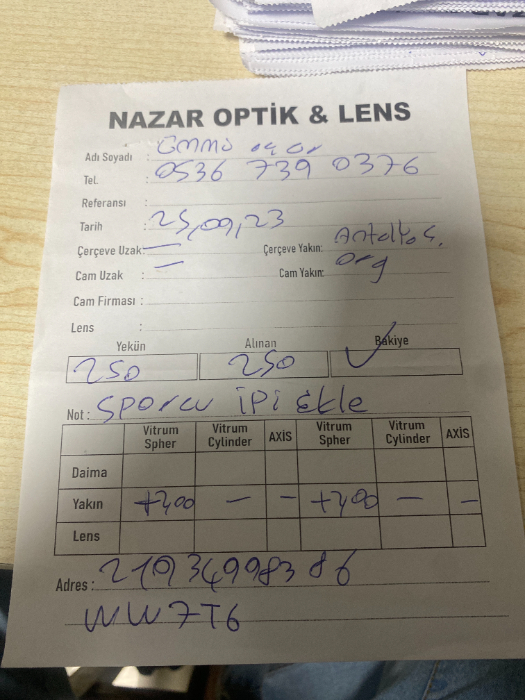 NAZAR OPTİK & LENS
Adı Soyadı :
Tel. : 0536 739 0376
Referansı :
Tarih : 25,09,23
Çerçeve Uzak: — Çerçeve Yakın:
Cam Uzak : — Cam Yakın: org
Cam Firması :
Lens :
Yekün Alınan Bakiye
250 250 ✓
Not : Sporcu İPİ Ekle
Vitrum Spher Vitrum Cylinder AXİS Vitrum Spher Vitrum Cylinder AXİS
Daima
Yakın — — — —
Lens
Adres : 21934998386
WW7T6